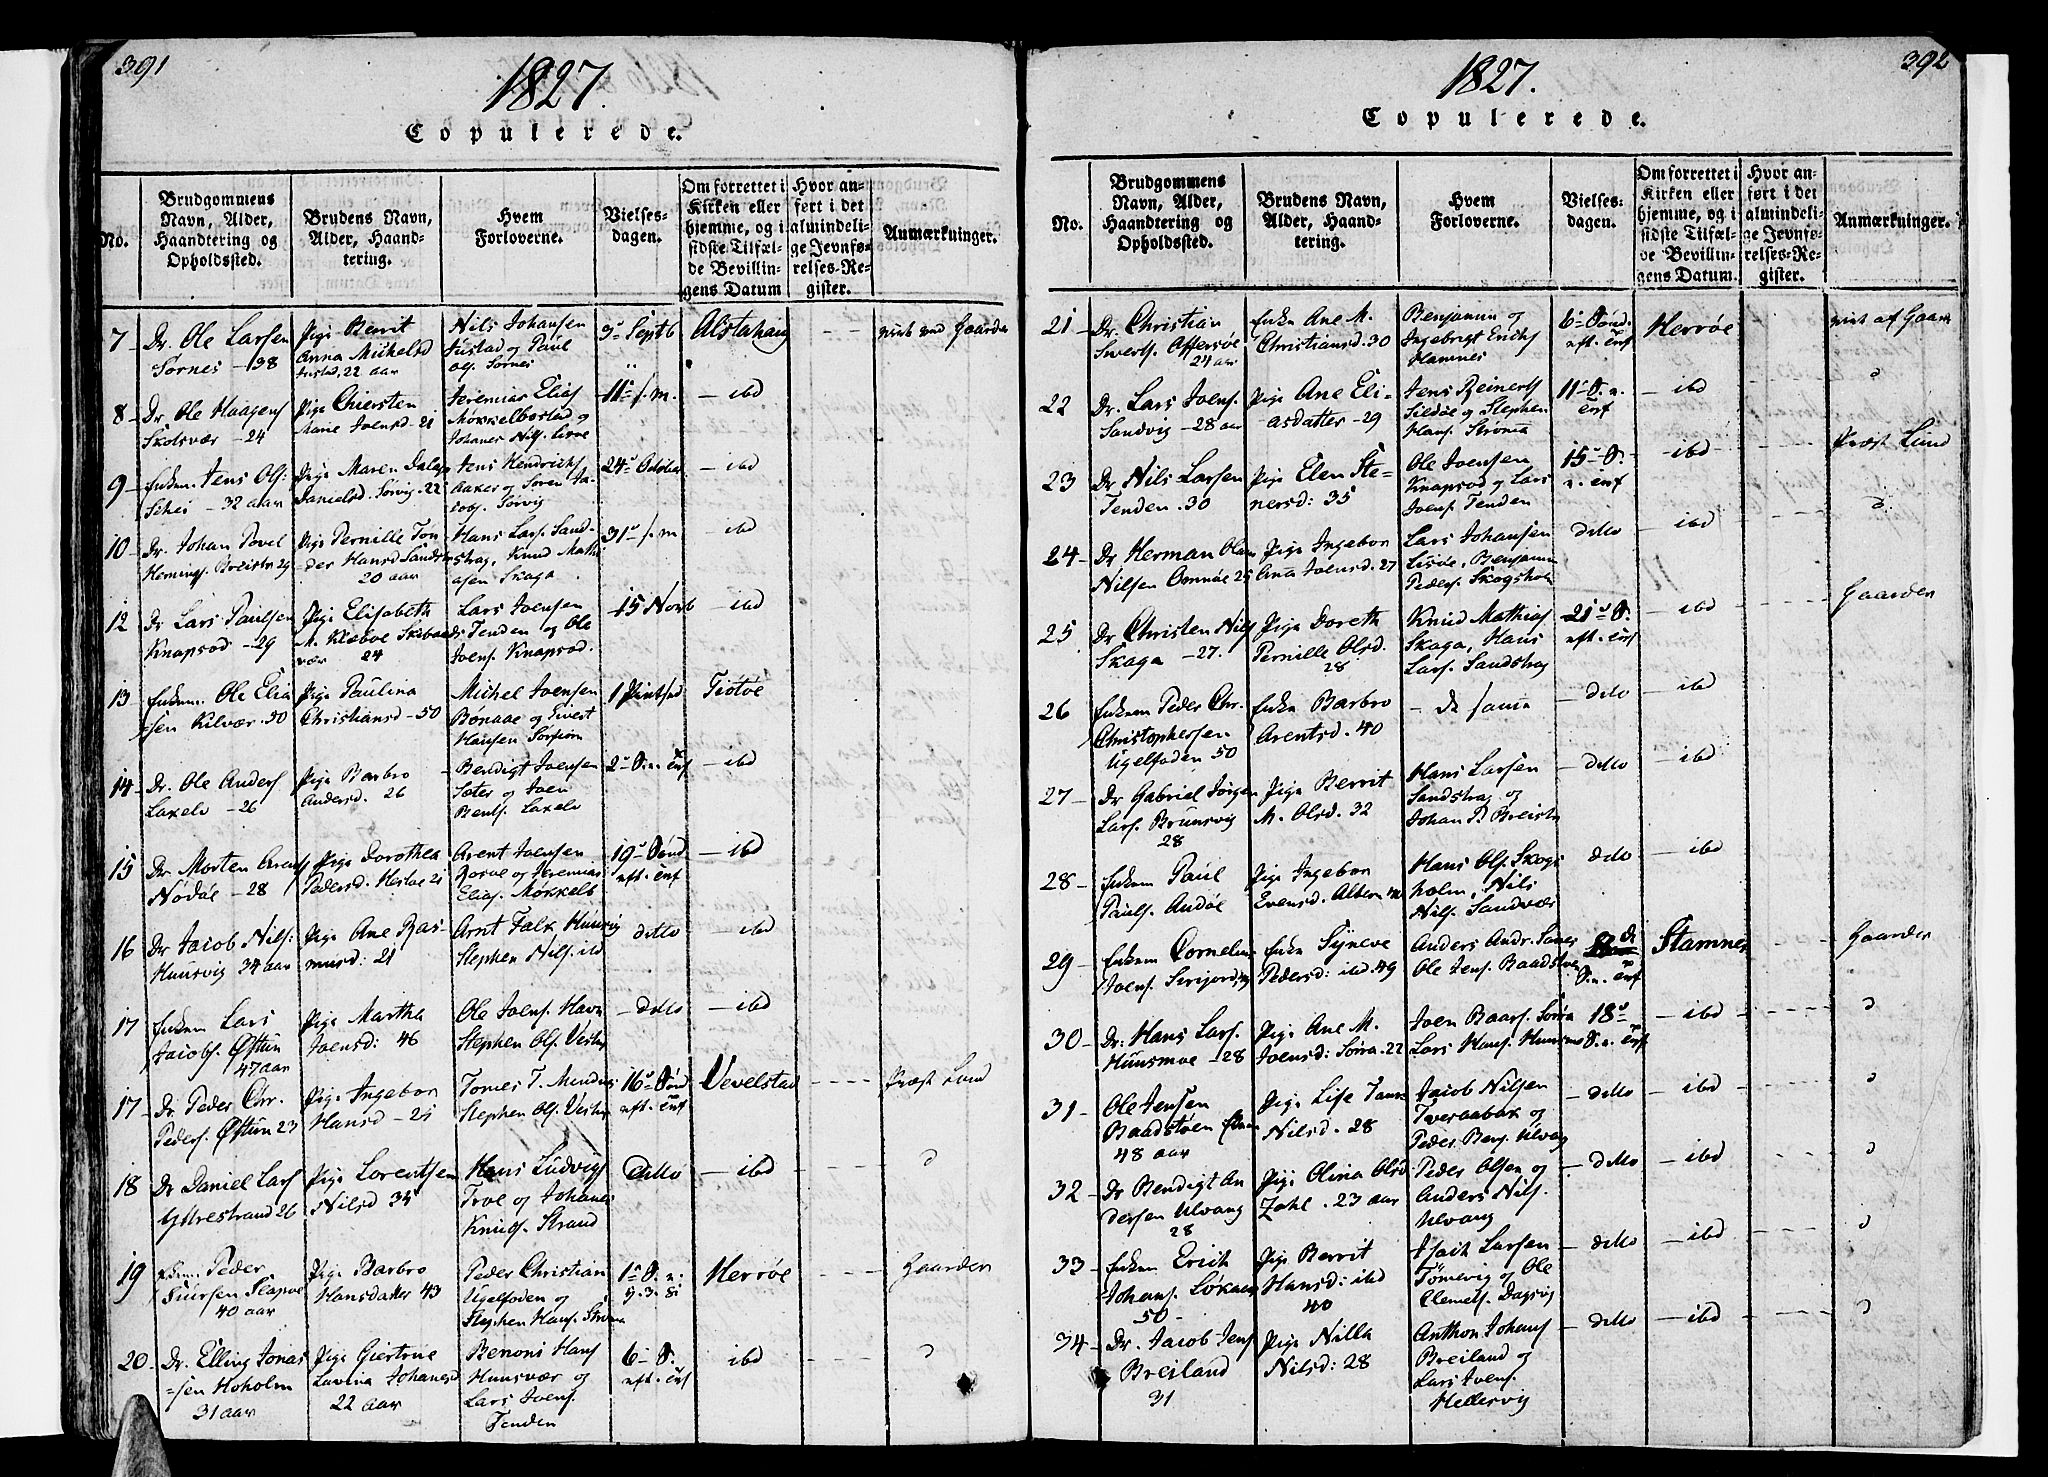 391
1827.
Copulerede.
No.
Brudgommens Navn, Alder, Haandtering og Opholdssted.
Brudens Navn, Alder, Haandtering.
Hvem Forloverne.
Vielses-dagen.
Om forrettet i Kirken eller hjemme, og i sidste Tilfælde Bevillingens Datum
Hvor anført i det almindelige Jevnførelses-Register.
Anmærkninger.
7 Dr. Ole Larsen Sornes - 38
Pige Berrit Anna Michelsd 22 aar
Nils Johansen Justad og Paul Ols. Sornes
3 Septb
Alstahaug
8 Dr. Ole Haagens Skotsvær - 24
Pige Chiersten Marie Joensd - 21
Jeremias Elias Mokkelbostad og Johanes Nils.
11 s. m.
ibd
9 Enkem. Jens Ols: Schei - 32 aar
Pige Maren Danielsd. Sørvig - 22
Jens Hendrichs Aaker og Søren Jacobs. Sørvig
24 October
ibd
10 Dr. Johan Povel Hemings. Breistr 29
Pige Pernille Tonder Hansd Sandstr 20 aar
Hans Lars. Sandstrag, Knud Mathiasen Skaga
31 s. m
ibd
12 Dr. Lars Paulsen Knapsod - 29
Pige Elisabeth M. Klæboe 24
Lars Joensen Tenden og Ole Joens. Knapsod.
15 Novb
ibd
13 Enkem. Ole Eliasen Kilvær - 50
Pige Paulina Christiansd - 50
Michel Joensen Bønaae og Sivert Hansen
1 Pintsed
Tiøtøe
14 Dr. Ole Anders Laxelv - 26
Pige Barbro Andersd. 26
Bendigt Joensen Sæter og Joen Bents. Laxelv
2 S. n. Trf
ibd
15 Dr. Morten Arents Nordøe - 28
Pige Dorothea Pedersd. Hestøe 21
Arent Joensen og Jeremias Elias. Møkkelb
19 Sønd eft. Trf
ibd
16 Dr Jacob Nils: Huusvig 34 aar
Pige Ane Rasmusd: 21
Arnt Falk Huusvig Stephen Nils. ibd
ditto
ibd
17 Enkem Lars Jacobs. Østun 47 aar
Pige Martha Joensd: 46
Ole Joens. Havn Stephen Ols. Vester
ditto
ibd
17 Dr. Peder Chr. Peders. Østun 23
Pige Ingebor Hansd - 21
Tomes T. Stephen Ols. Vester
16 Sønd eft. Trf
Vevelstad
Præst Lund
18 Dr Daniel Lars Ystrestrand 26
Pige Lorentsen Nilsd 34
Hans Ludvigs Troe og Johanes Knuds. Strand
ditto
ibd
19 Enkem. Peder 40 aar
Pige Barbro Hansdatter 43
Peder Christian Ugelfoden og Stephen Hans. Strøma
Herrøe
Gaarder
20 Dr. Elling Jonassen Hoholm 31 aar
Pige Giertrue Lavina Johanesd 22 aar
Benoni Hans Huusvær og Lars Joens. Tenden
6 S. eft. Trf
ibd
392
1827.
Copulerede.
No.
Brudgommens Navn, Alder, Haandtering og Opholdssted.
Brudens Navn, Alder, Haandtering.
Hvem Forloverne.
Vielses-dagen.
Om forrettet i Kirken eller hjemme, og i sidste Tilfælde Bevillingens Datum.
Hvor anført i det almindelige Jevnførelses-Register.
Anmærkninger.
21 Dr. Christian Siverts. Offersøe 24 aar
Enke Ane M. Christiansd. 30
Benjamin og Ingebrigt Erichs Hamnes
6 Sønd. eft. Trf
Herrøe
viet af Gaarder
22 Dr. Lars Joens. Sandvig - 28 aar
Pige Ane Eliasdatter - 29
Jens Reinerts Sildøe og Stephen Hans. Strøma
11 S. n. Trf
ibd
23 Dr Nils Larsen Tenden. 30
Pige Elen Stenersd: 35
Ole Joensen Knapsod og Lars Joens. Tenden
15 S. n. Trf
ibd
Præst Lund
24 Dr Herman Nilsen Omnøe 25
Pige Ingebor Ana Joensd. 27
Lars Johansen Benjamin Peders. Skogsholm
ditto
ibd
25 Dr Christen Nils Skaga - 27.
Pige Doreth Pernille Olsd. 28
Knud Mathias Skaga, Hans Lars. Sandstrag
21 S. eft. Trf
ibd
Gaarder
26 Enkem Peder Chr. Christophersen Ugelfoden 50
Enke Barbro Arentsd. 40
de samme
ditto
ibd
27 Dr Gabriel Jørgen Lars. Brunsvig 28
Pige Berrit M. Olsd. 32
Hans Larsen Sandstrag og Johan P. Breistr
ditto
ibd
28 Enkem Paul Pauls. Andøe
Pige Ingebor Evensd.
Hans Ols. Skogsholm, Nils Nils. Sandvær
ditto
ibd
29 Enkem Cornelius Joens.
Enke Syneve Pedersd: ibd. 49
Anders Andr. Ole Jens. Baadstøen
S. n. Trf
Stamnes
Gaarder
30 Dr: Hans Lars. Huusmoe - 28
Pige Ane M. Joensd: Sørra. 22
Joen Baars. Sørra Lars Hans. Huusmo
18 S. n. Trf
ibd
31 Ole Jensen Baadstøen 48 aar
Pige Lise Nilsd. 28
Jacob Nilsen Tveraabak og Peder Bens. Ulvang
ditto
ibd
32 Dr Bendigt Andersen Ulvang 28
Pige Olina Olsd Zahl. 23 aar
Peder Olsen og Anders Nils. Ulvang
ditto
ibd
33 Enkem Erich Johans. 50
Pige Berrit Hansd: ibd 40
Isach Larsen og Ole Clemets. Dagsvig
ditto
ibd
34 Dr. Jacob Jens Breiland 31
Pige Nilla Nilsd: 28
Anthon Johans Breiland og Lars Ivers. Hellesvig
ditto
ibd